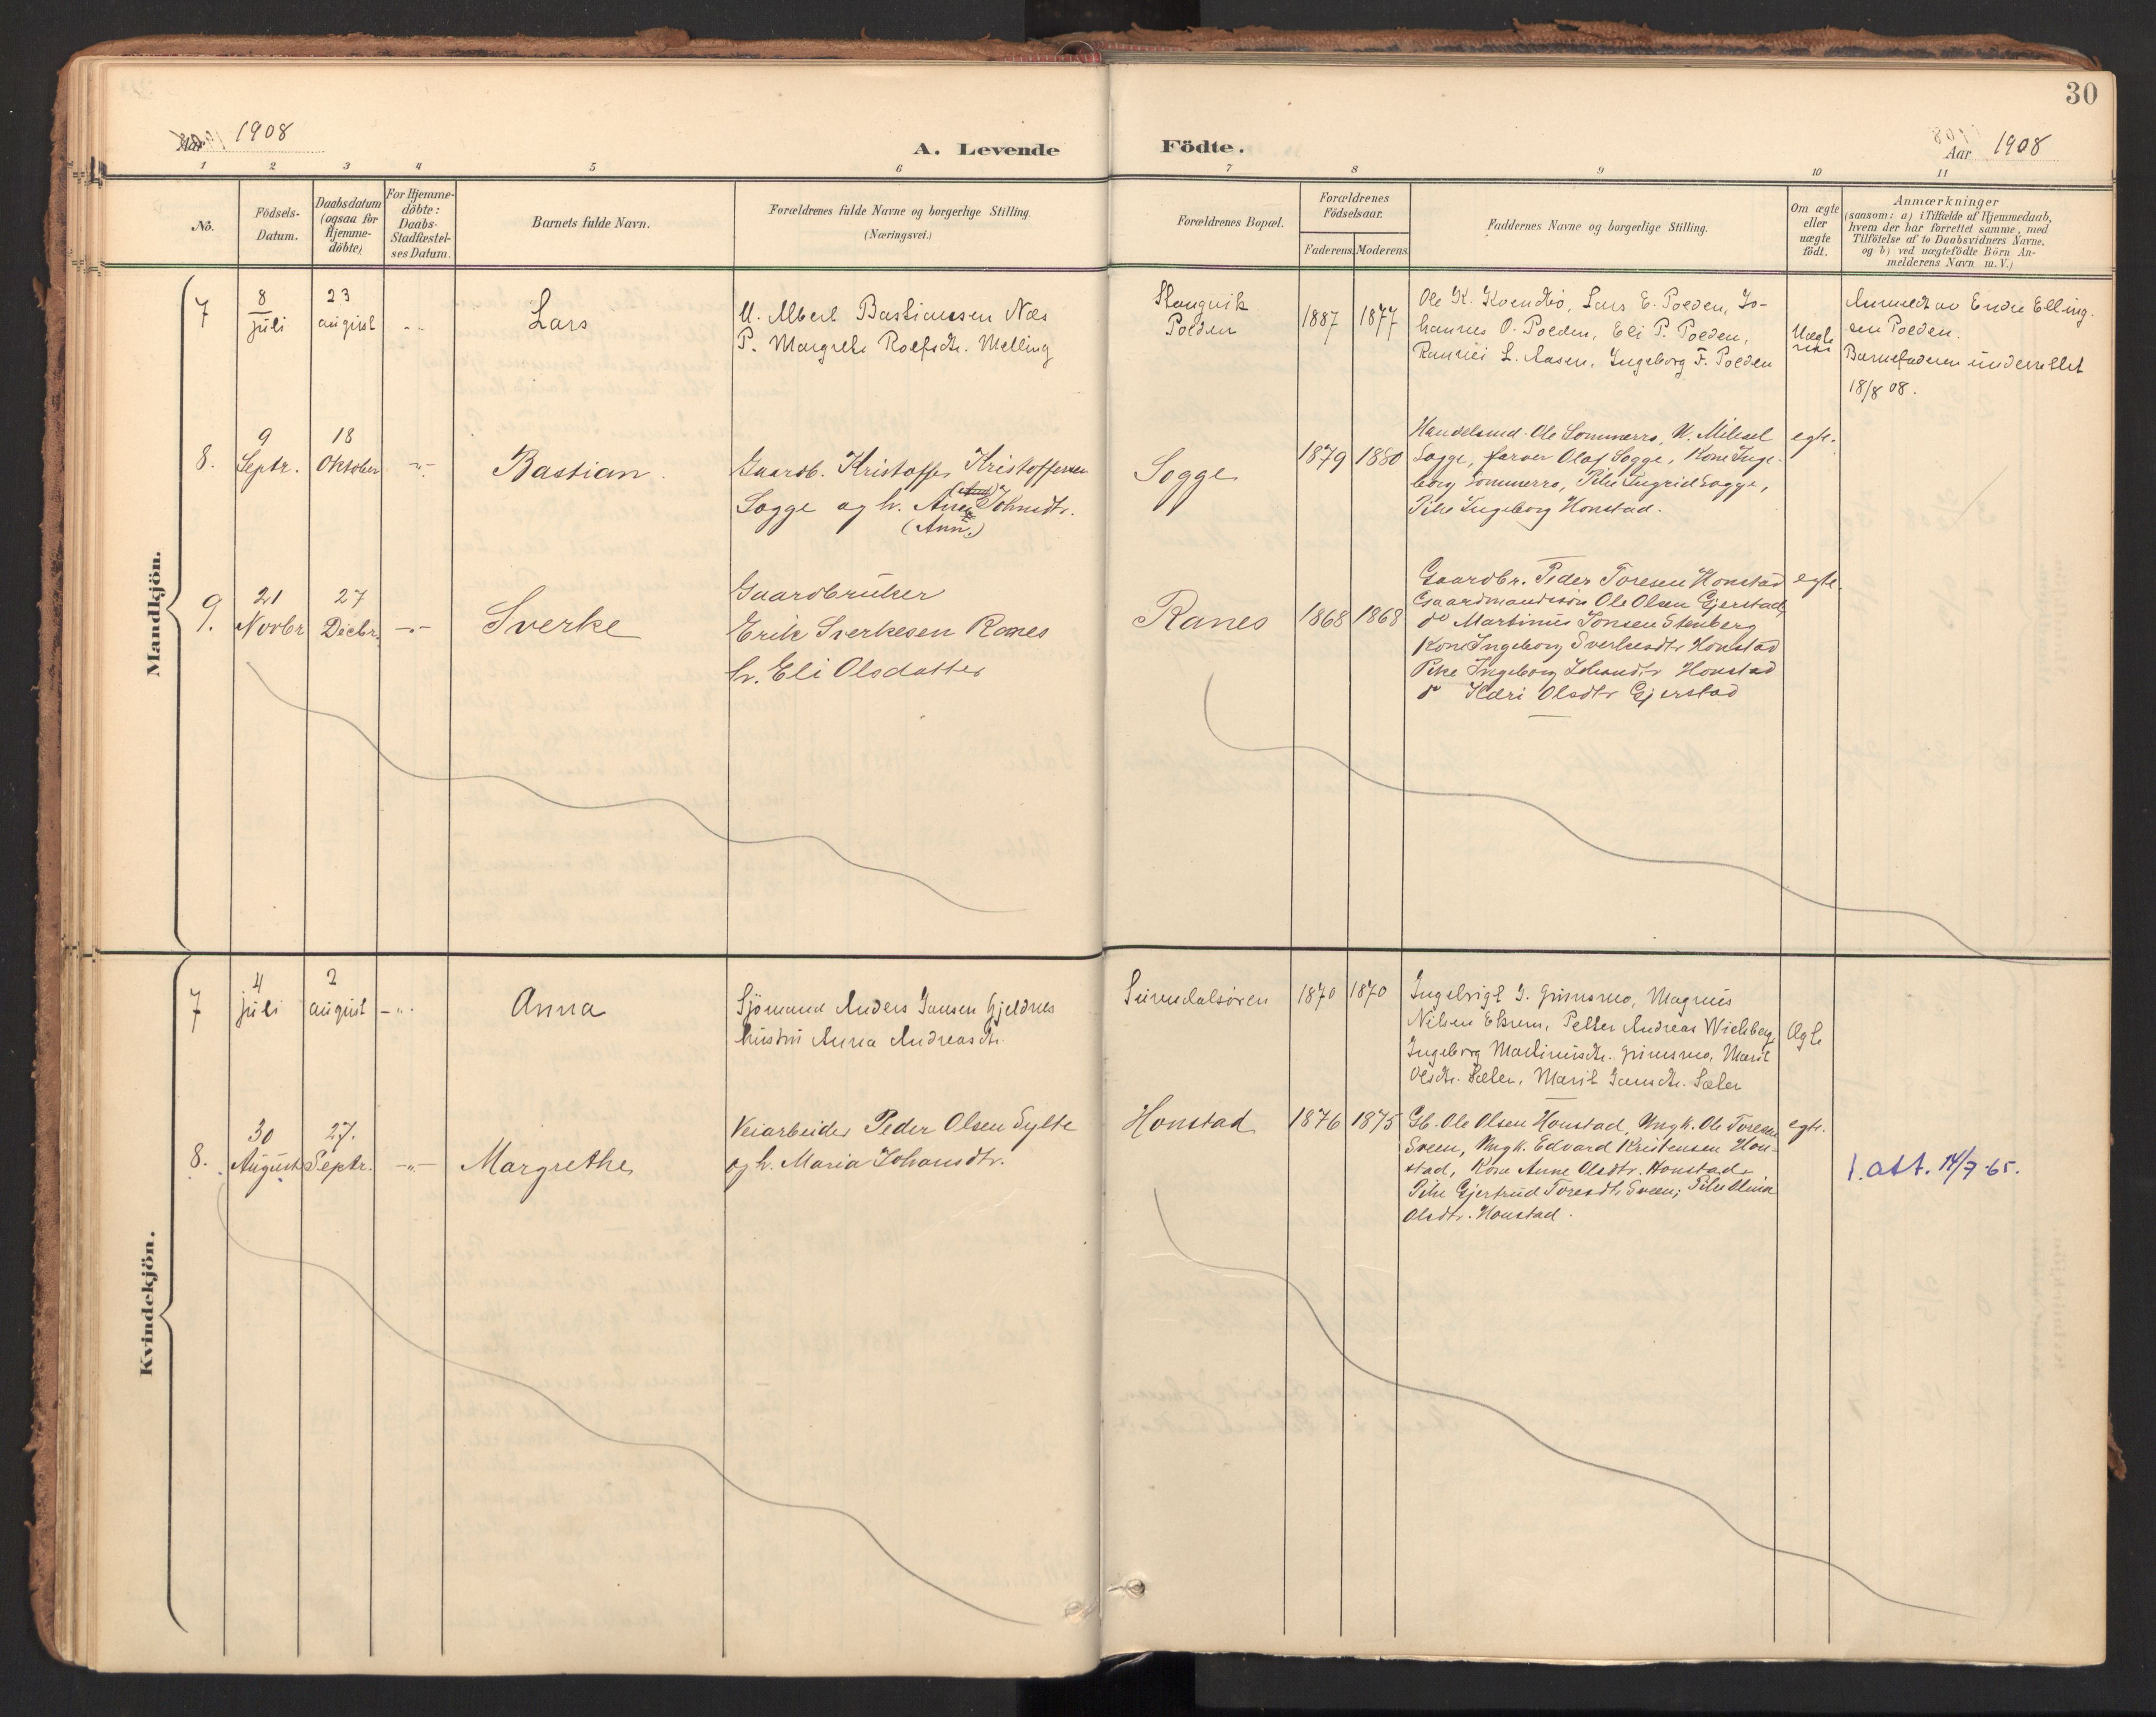 30
Aar 1908
A. Levende Födte.
Aar 1908
1 2 3 4 5 6 7 8 9 10 11
No.
Födsels-
Datum.
Daabsdatum
(ogsaa for
Hjemme-
döbte)
For Hjemme-
döbte:
Daabs-
Stadfæstel-
ses Datum.
Barnets fulde Navn.
Forældrenes fulde Navne og borgerlige Stilling.
(Næringsvei.)
Forældrenes Bopæl.
Forældrenes
Födselsaar.
Faderens. Moderens.
Faddernes Navne og borgerlige Stilling.
Om ægte
eller
uægte
födt.
Anmærkninger
(saasom: a) i Tilfælde af Hjemmedaab,
hvem der har forrettet samme, med
Tilföielse af to Daabsvidners Navne,
og b) ved uægtefödte Börn An-
melderens Navn m. V.)
Mandkjön.
7
8
juli
23
august
- " -
Lars
U. Albert Bastiansen Næs
P. Margrete Roelfsdtr. Melling
Polden
1887 1877
Ole K. Kvendbö, Lars E. Polden, Jo-
hannes O. Polden, Eli P. Polden,
L. Aasen, Ingeborg F. Polden
Uægte
Anmeldt av Endre Elling-
sen Polden.
Barnefaderen underrettet
18/8 08.
8.
9
Septr.
18
Oktober
- " -
Bastian.
Gaardb. Kristoffer Kristoffersen
Sogge og h. Johnsdtr.
(Ann.)
Sogge
1879 1880
Handelsmd. Ole Sommerro, U. Mikael
Sogge, farver Olaf Sogge, Kone Inge-
borg Sommerro, Pike Ingrid Sogge,
Pike Ingeborg Honstad.
egte.
9.
21
Novbr
27
Decbr.
- " -
Sverke
Gaardbruker
Erik Sverkesen Ranes
h. Eli Olsdatter
Ranes
1868 1868
Gaardbr. Peder Toresen Honstad
Gaardmandssön Ole Olsen Gjerstad,
do Martinus Jonsen Stenberg
Kone Ingeborg Sverkesdtr Honstad
Pike Ingeborg Johansdtr Honstad
do Kari Olsdtr Gjerstad
egte.
Kvindekjön.
7
4
juli
2
august
- " -
Anna
Sjömand Anders Jansen Gjeldnes
hustru Anna Andreasdtr.
Surendalsören
1870 1870
Ingebrigt J. Grimsmo, Magnus
Nilsen Ekrem, Petter Andreas Wickberg,
Ingeborg Martinusdtr. Grimsmo, Marit
Olsdtr. Sæter, Marit Jansdtr. Sæter
Ægte
8.
30
August
27.
Septr.
- " -
Margrethe
Veiarbeider Peder Olsen Sylte
og h. Maria Johansdtr.
Honstad
1876 1875
Gb. Ole Olsen Honstad, Ungk. Ole Toresen
Sveen, Ungk. Edvard Kristensen Hon-
stad, Kone Anne Olsdtr. Honstad,
Pike Gjertrud Toresdtr. Sveen; Pike Olivia
Olsdtr. Honstad.
egte.
1. att. 14/7-65.